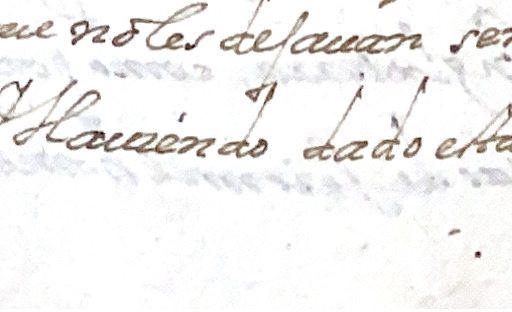 ue nõ les dejauan ser
Hauiendo dado esta